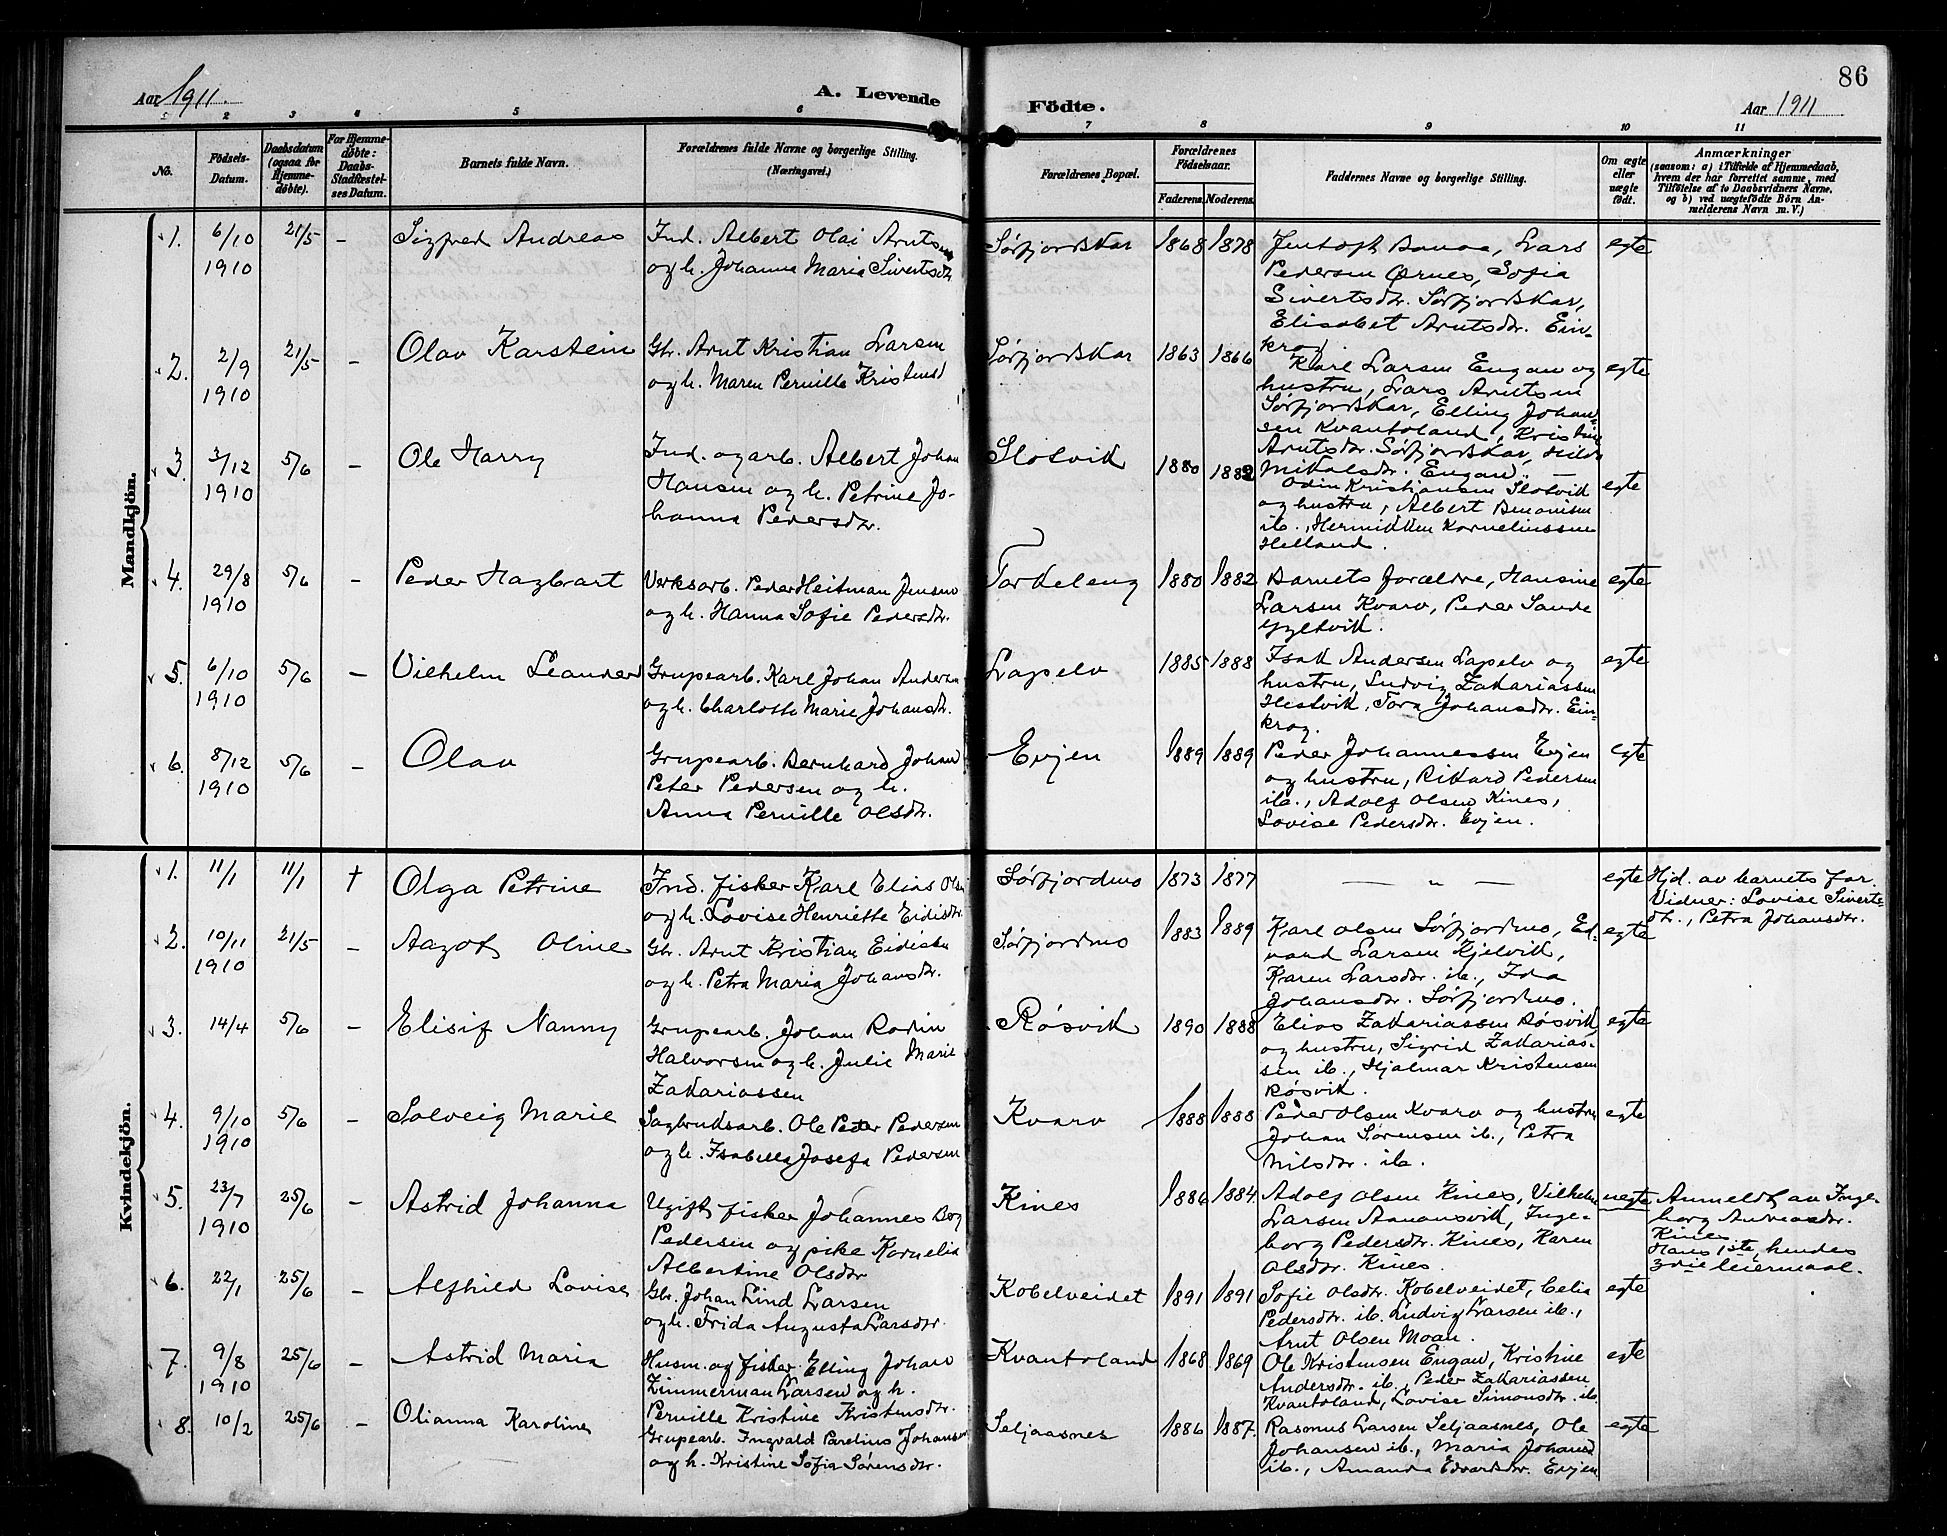 86
Aar 1911.
A. Levende Födte.
Aar 1911
1 2 3 4 5 6 7 8 9 10 11
No.
Födsels-
Datum.
Daabsdatum
(ogsaa for
Hjemme-
døbte).
For Hjemme-
døbte:
Daabs-
Stadfæstel-
ses Datum.
Barnets fulde Navn.
Forældrenes fulde Navne og borgerlige Stilling.
(Næringsvei.)
Forældrenes Bopæl.
Forældrenes
Födselsaar.
Faderens. Moderens.
Faddernes Navne og borgerlige Stilling.
Om ægte
eller
uægte
født.
Anmærkninger
(saasom: a) i Tilfælde af Hjemmedaab,
hvem der har forrettet samme, med
Tilföielse af to Daabsvidners Navne,
og b) ved uægtefödte Börn An-
melderens Navn m. V.)
Mandkjön.
1. 6/10 1910 21/5 – Sigfred Andreas
Ind. Albert Olai Arntsen
og h. Johanna Maria Sivertsdtr.
Sørfjordskar 1868 1878
Jentoft Bonaa, Lars
Pedersen Ørnes, Sofia
Sivertsdtr. Sørfjordskar,
Elisabet Arntsdtr. Ein-
krog.
egte
2. 2/9 1910 21/5 – Olav Karstein
Gbr. Arnt Kristian Larsen
og h. Maren Pernille Kristensd
Sørfjordskar 1863 1866
Karl Larsen Engan og
hustru, Lars Arntsen
Sørfjordskar, Elling Johan-
sen Kvantoland, Kristine
Arntsdtr. Sørfjordskar, Hilda
Mikalsdtr. Engan.
egte
3. 3/12 1910 5/6 – Ole Harry
Ind. og arb. Albert Johan
Hansen og h. Petrine Jo-
hanna Pedersdtr.
Slotvik 1880 1882
Odin Kristiansen Slotvik
og hustru, Albert Benonisen
ib., Hermikken Kornelinssen
Helland.
egte
4. 29/8 1910 5/6 – Peder Hagbart
Verksarb. Peder Heitman Jensen
og h. Hanna Sofie Pedersdtr.
Torkeleng 1880 1882
Barnets forældre, Hansine
Larsen Kvarv, Peder Sande
Gyltvik.
egte
5. 6/10 1910 5/6 – Vilhelm Leander
Grupearb. Karl Johan Andersen
og h. Charlotte Marie Johansdtr.
Lapelv 1885 1888
Isak Andersen Lapelv og
hustru, Ludvig Zakariassen
Hestvik, Tora Johansdtr. Ein-
krog.
egte
6. 8/12 1910 5/6 – Olav
Grupearb. Bernhard Johan
Peter Pedersen og h.
Anna Pernille Olsdtr.
Evjen 1889 1889
Peder Johannessen Evjen
og hustru, Rikard Pedersen
ib., Adolf Olsen Kines,
Lovise Pedersdtr. Evjen.
egte
Kvindekjön.
1. 11/1 11/1 † Olga Petrine
Ind. fisker Karl Elias Olsen
og h. Lovise Henriette Eidisdtr.
Sørfjordmo 1873 1877
— „ —
egte
Hjd. av barnets far.
Vidner: Lovise Siverts-
dtr., Petra Johansdtr.
2. 10/11 1910 21/5 – Aagot Oline
Gbr. Arnt Kristian Eidissen
og h. Petra Maria Johansdtr.
Sørfjordmo 1883 1889
Karl Olsen Sørfjordmo, Ed-
vard Larsen Kjelvik,
Karen Larsdtr. ib., Ida
Johansdtr. Sørfjordmo.
egte
3. 14/4 5/6 – Elisif Nanny
Grupearb. Johan Rodin
Halvorsen og h. Julie Marie
Zakariassen
Røsvik 1890 1888
Elias Zakariassen Røsvik
og hustru, Sigrid Zakarias-
sen ib., Hjalmar Kristensen
Røsvik.
egte
4. 9/10 1910 5/6 – Solveig Marie
Sagbruksarb. Ole Peder Pedersen
og h. Isabella Josefa Pedersen
Kvarv 1888 1888
Peder Olsen Kvarv og hustru
Johan Sørensen ib., Petra
Nilsdtr. ib.
egte
5. 23/7 1910 25/6 – Astrid Johanna
Ugift fisker Johannes Berg
Pedersen og pike Kornelia
Albertine Olsdtr
Kines 1886 1884.
Adolf Olsen Kines, Vilhelm
Larsen Aananvik, Inge-
borg Pedersdtr. Kines, Karen
Olsdtr. Kines.
uegte
Anmeldt av Inge-
borg Andreasdtr.
Kines
Hans 1ste, hendes
3die leiermaal.
6. 22/1 25/6 – Alfhild Lovise
Gbr. Johan Lind Larsen
og h. Frida Augusta Larsdtr.
Kobelveidet 1891 1891
Sofie Olsdtr. Kobelveidet, Celia
Pedersdtr. ib. Ludvig Larsen ib.,
Arnt Olsen Moan.
egte
7. 9/8 1910 25/6 – Astrid Maria
Husm. og fisker Elling Johan
Zimmerman Larsen og h.
Pernille Kristine Kristensdtr.
Kvantoland 1868 1869
Ole Kristensen Engan, Kristine
Andersdtr. ib., Peder Zakariassen
Kvantoland, Lovise Simonsdtr. ib.
egte
8. 10/2 25/6 – Olianna Karoline
Grupearb. Ingvald Parelius Johansen
og h. Kristine Sofia Sørensdtr.
Seljaasnes 1886 1887.
Rasmus Larsen Seljaasnes, Ole
Johansen ib., Maria Johansd
ib., Amanda Edvardsdtr. Evjen
egte